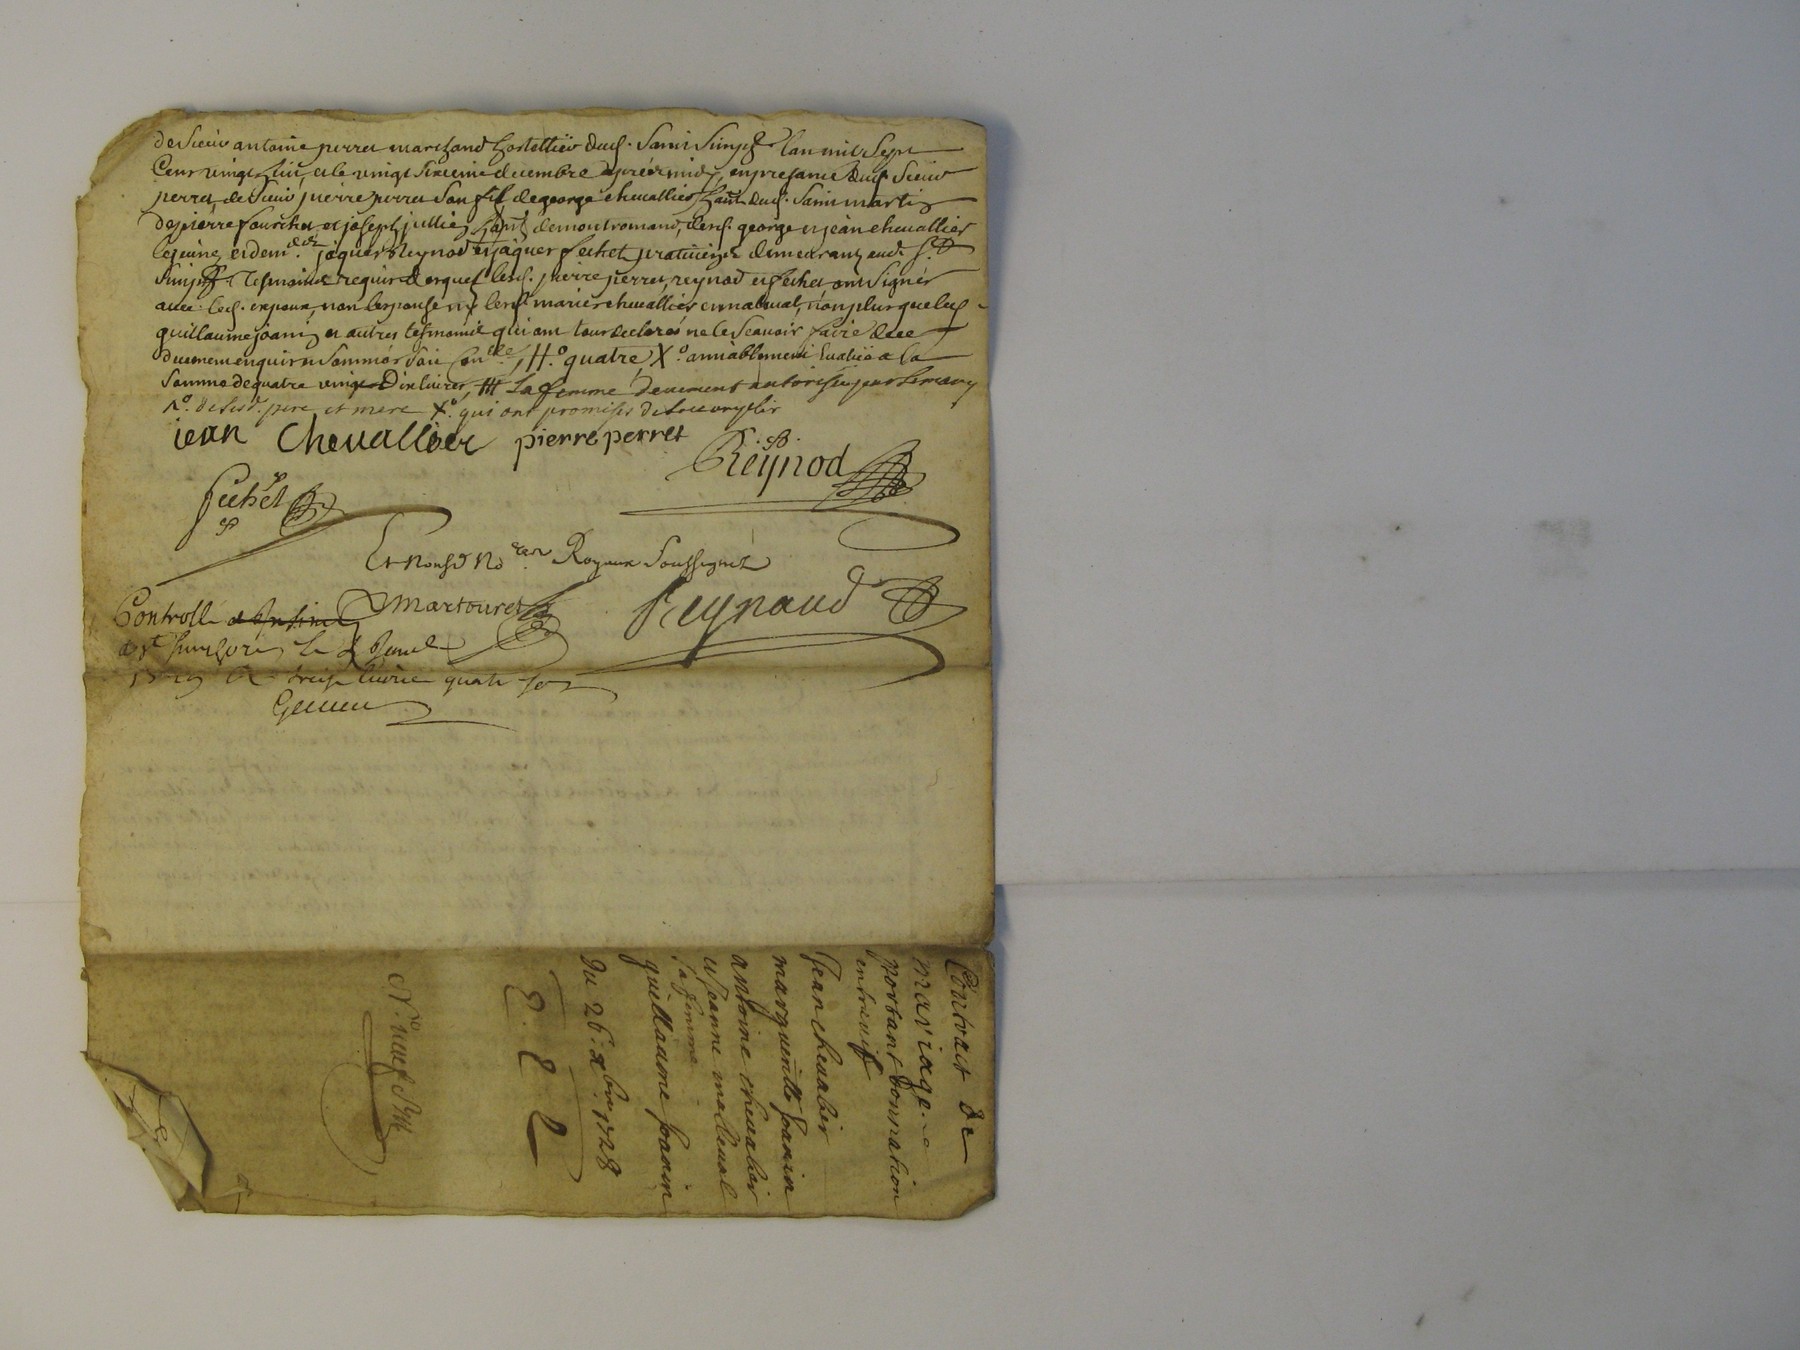 de Sieur antoine perret marchand hostellier dud. Saint Simph. lan mil Sept
Cent vingt huit, et le vingt Sixieme decembre apres midy, en presance dud. Sieur
perret, de Sieur pierre perret Son fils, de george chevallier habt. dud. Saint martin
de pierre fourchet et joseph jullien habt. de montromand, lesd. george et jean chevallier
le jeune, et de mes. jaques Reynod et jaques fechet praticiens demeurants aud. St.
Simph. tesmoins requis desquels lesd. pierre perret, reynod et fechet ont Signés
avec led. espoux, non lespouse ny lesd. mariés chevallier et malleval, non plus que led.
guillaume joanin et autres tesmoins qui ont tous declarés ne le Scavoir faire de ce
duement enquis et Sommés
quatre, Xo. amiablement Evalué a la
Somme de quatre vingt Dix livres, La femme deuement autorisée par Le mary
de Sesd. pere et mere Xo. qui ont promis de
jean Chevallier pierre perret
Reÿnod
fechet
Et nous d. No. Royaux Soussignés
Martouret
Reynaud
Controllé
a St. Simphorien Le
1729 R. treize livres quatre sols
Contract de
mariage
Portant donnation
entre
Jean chevalier
margueritte Joanin
antoine chevalier
et Jeanne malleval
Sa femme
guillaume Joanin
Du 26. xbre. 1728